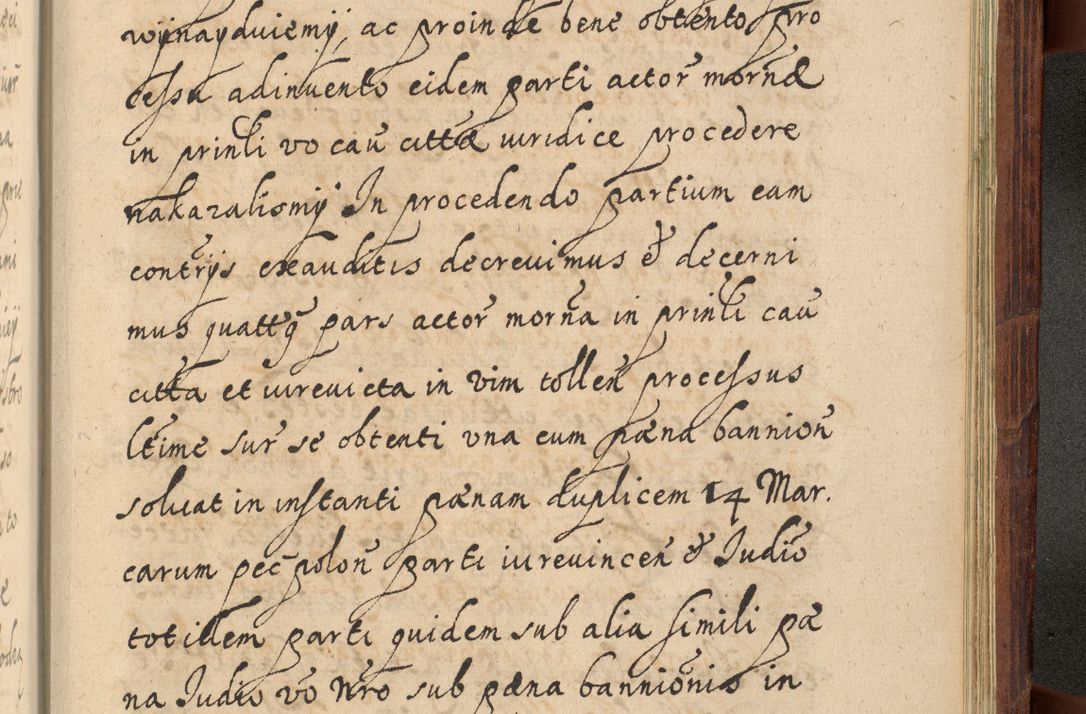 wÿnayduiemÿ, ac proinde bene obtento pro
cessu adinvento eidem parti actor̃ morñæ
in prinl̃i vo cau᷉ cittæ iuridice procedere
nakazalismÿ In procedendo partium eam
contrÿs exauditis decrevimus & decerni
mus quatt᷉q pars actor̃ morña in prinl̃i cau᷉
citta et iurevicta in vim tolleñ processus
lt᷉ime sur̃ se obtenti vna cum pæna bannioñ
soluat in instanti pænam duplicem 14 Mar.
carum pec̃ poloñ parti iurevinceñ & Iudiõ
totidem parti quidem sub alia simili pæ
na Iudiõ vo Nr̃o sub pæna banniõnis in